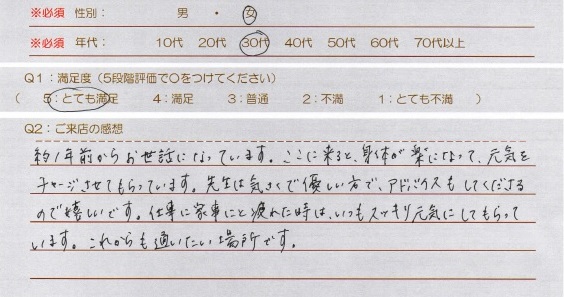 ※必須 性別： 男 ・ 女
※必須 年代： 10代 20代 30代 40代 50代 60代 70代以上
Q1：満足度（5段階評価で○をつけてください）
（ 5：とても満足 4：満足 3：普通 2：不満 1：とても不満 ）
Q2：ご来店の感想
約1年前からお世話になっています。ここに来ると、身体が楽になって、元気を
チャージさせてもらっています。先生は気さくで優しい方で、アドバイスもしてくださる
ので嬉しいです。仕事に家事にと疲れた時は、いつもスッキリ元気にしてもらって
います。これからも通いたい場所です。